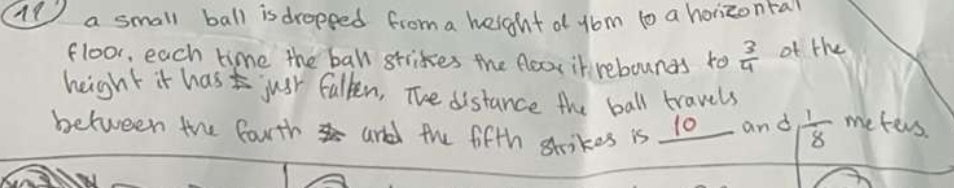 11 a small ball is dropped from a height of 16m to a horizontal
floor. each time the ball strikes the floor it rebounds to 3/4 of the
height it has just fallen, The distance the ball travels
between the fourth and the fifth strikes is 10 and 1/8 meters.